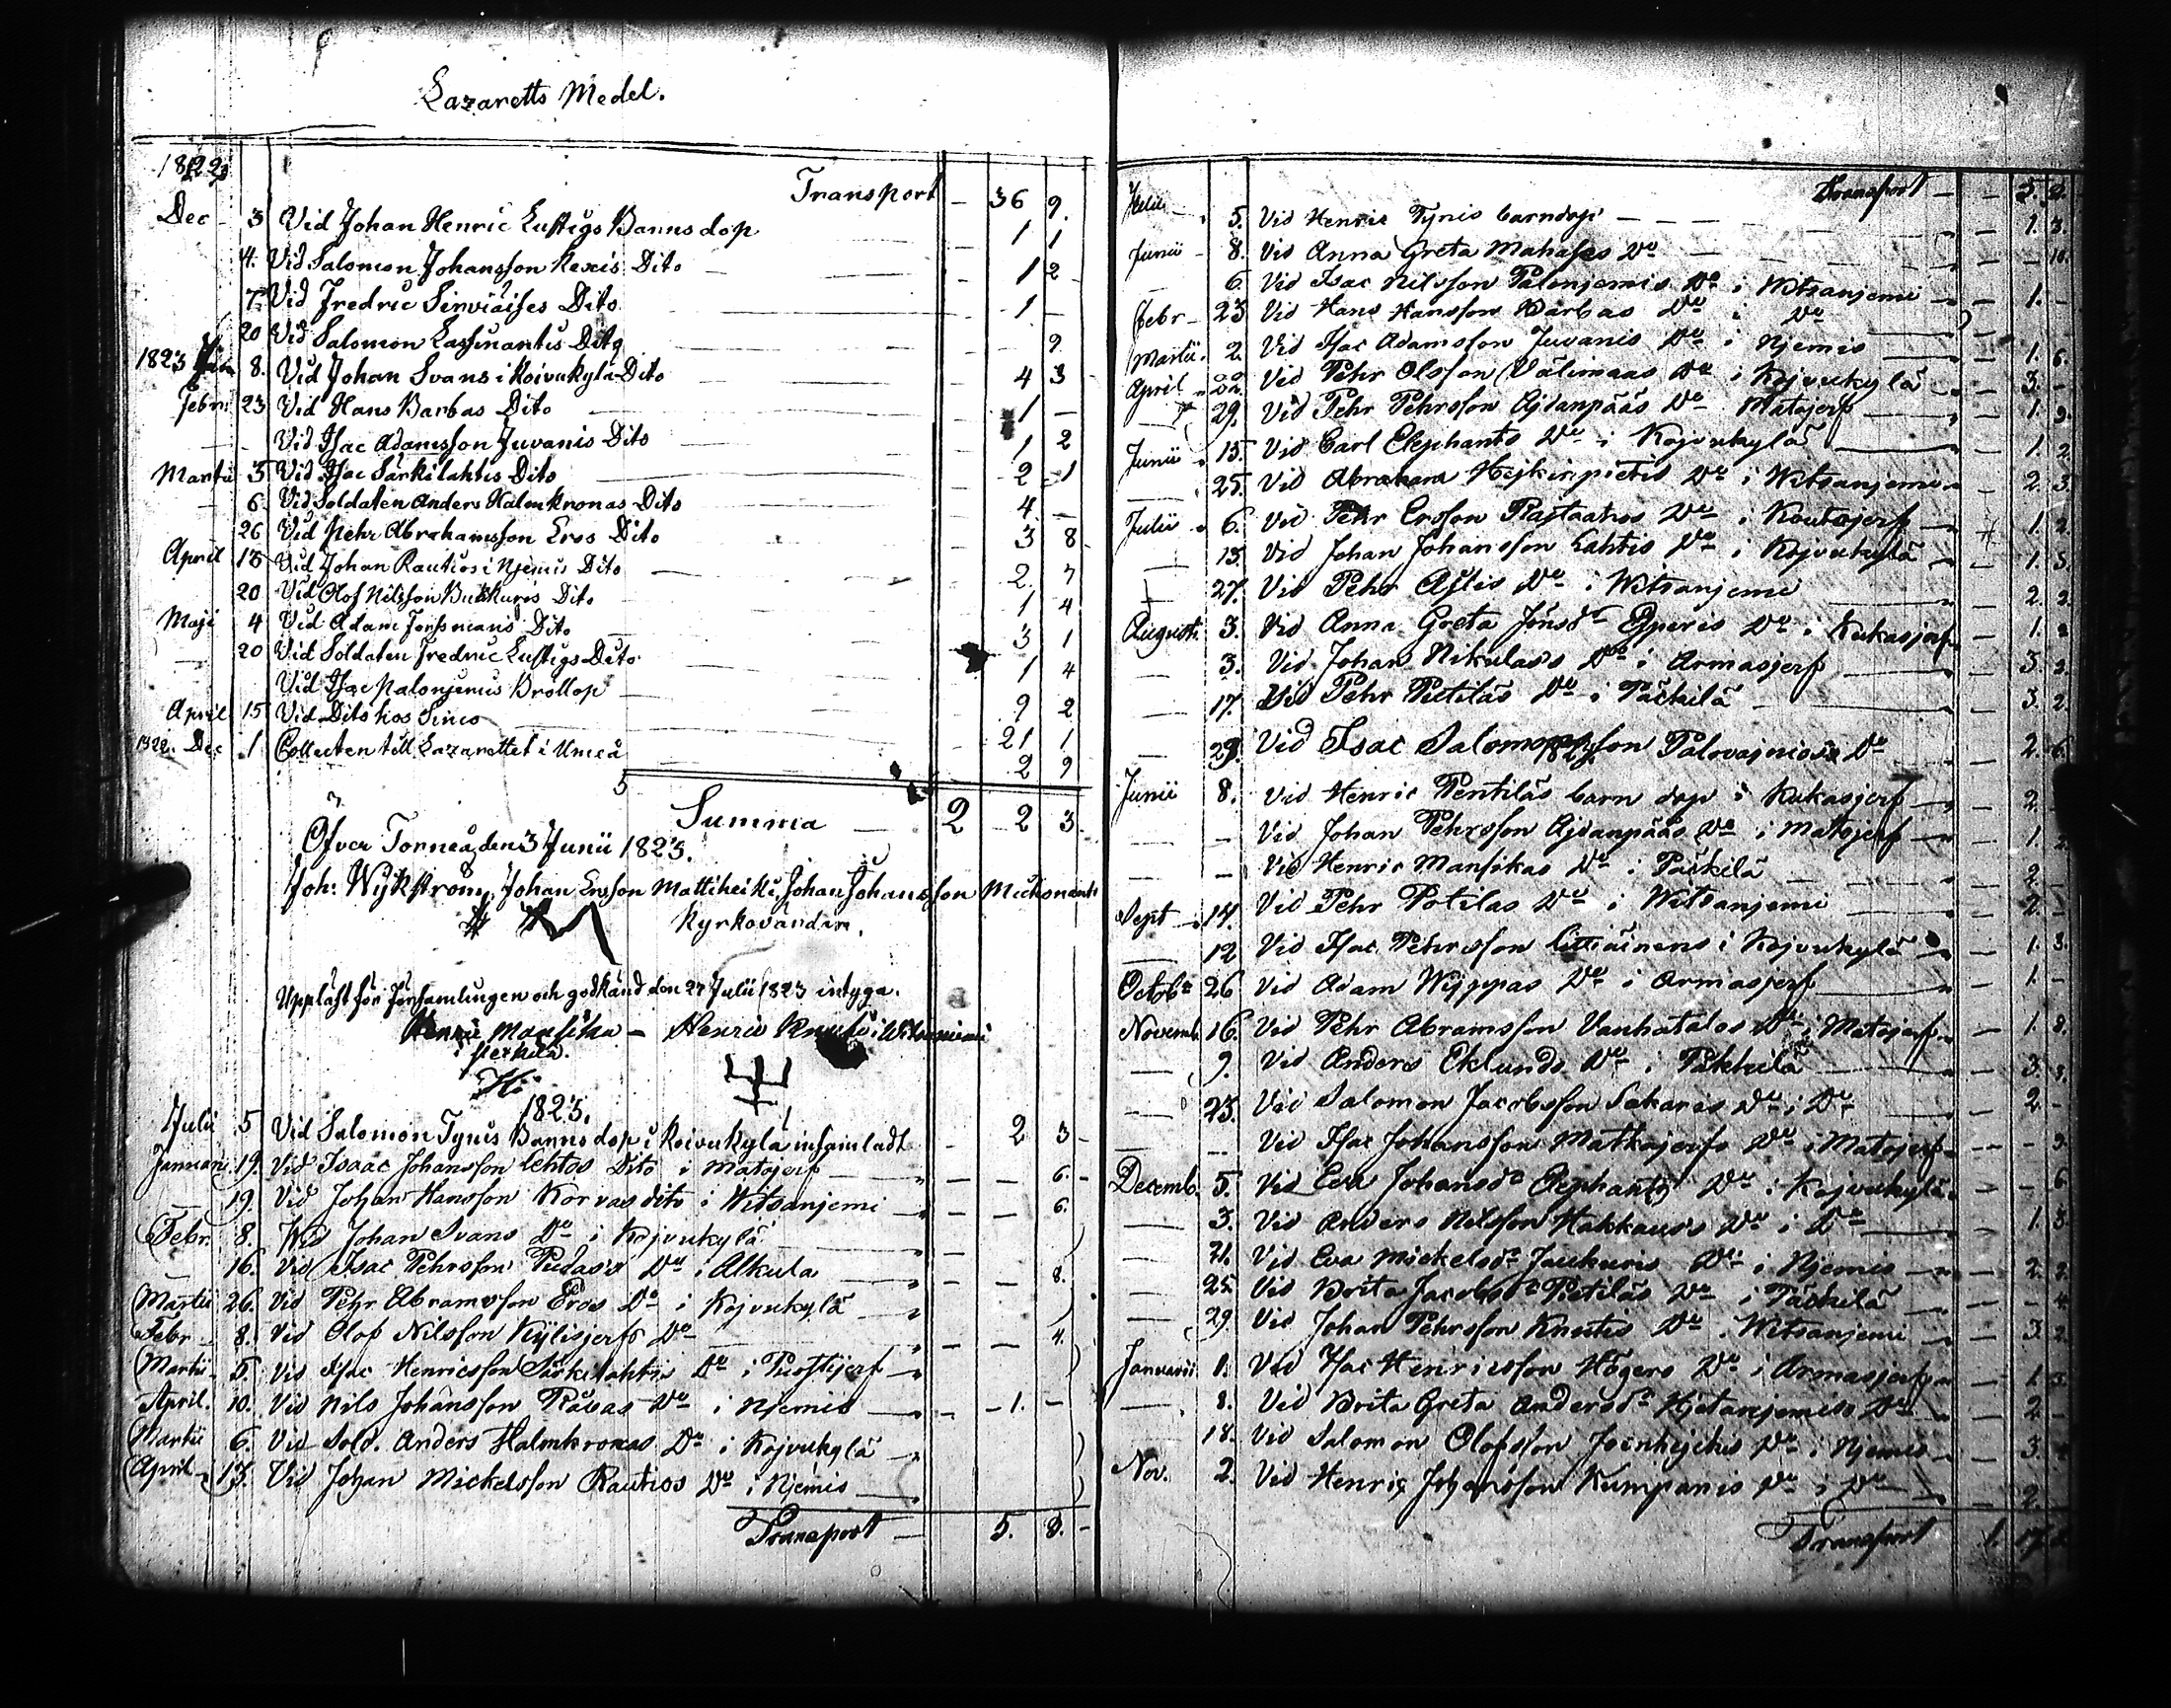 Lazaretts Medel.
1822
Transport - 36 9.
Dec - 3 Vid Johan Henric Lustigs Barnsdop - 1 1
4. Vid Salomon Johansson Kexis Dito - 1 2
7. Vid Fredric Dito - 1 -
20 Vid Salomon Lassinantis Dito - - 9
1823 Jan 8. Vid Johan Svans i Koivukylä Dito - 4 3
Febr: 23 Vid Hans Barbas Dito - 1 -
Vid Isac Adamsson Juvanis Dito - 1 2
Martii 3 Vid Isac Särkilahtis Dito - 2 1
- 6. Vid Soldaten Anders Halmkronas Dito - 4 -
26 Vid Pehr Abrahamsson Eros Dito - 3 8
April 13 Vid Johan Rautios i Njemis Dito - 2. 7
20 Vid Olof Nilsson Dito - 1 4
Maji 4 Vid Adam Dito - 3 1
- 20 Vid Soldaten Fredric Lustigs Dito - 1 4
Vid Isac Palonjemis Bröllop - 9 2
April 15 Vid Dito hos Simo - 21 1
1822. Dec 1 Collecten till Lazarettet i Umeå - 2 9
Summa - 2 2 3
Öfver Torneå den 3 Junii 1823.
Joh: Wykström, Johan Ersson Mattiheiki, Johan Johansson
Kyrkovärdar.
Uppläst för Församlingen och godkänd den 27 Julii 1823 intyga.
Henric Mansika - Henric Knuuti i Witsaniemi
i Perkilä.
1823.
Julii 5 Vid Salomon Tynis Barnsdop i Koivukylä insamladt - 2 3 -
Januarii 19. Vid Isaac Johansson Lehtos Dito i Matojerf - - 6. -
19. Vid Johan Hansson Korvas dito i Witsanjemi - - 6.
Febr. 8. Vid Johan Svans Do i Kojvukylä -
- 16. Vid Isac Pehrsson Pudas's Do i Alkula - - 8.
Martii 26. Vid Pehr Abramsson Eros Do i Kojvukylä
Febr - 8. Vid Olof Nilsson Kylisjerfs Do - - 4.
Martii - 5. Vid Isac Henricsson Särkilahtis Do i Puostijerf
April. 10. Vid Nils Johansson Råvas Do i Njemis - - 1. -
Martii 6. Vid Sold. Anders Halmkronas Do i Kojvukylä
April - 13. Vid Johan Mickelsson Rautios Do i Njemis
Transport - 5. 8. -
Transport - - 5. 8.
Julii - 5. Vid Henric Tynis barndop - 1. 3.
Junii - 8. Vid Anna Greta Mahases Do - - 10.
- 6. Vid Isac Nilsson Palonjemis Do i Witsanjemi - 1. -
Febr - 23 Vid Hans Hansson Barbas Do i Do
Martii. 2. Vid Isac Adamsson Juvanis Do i Njemis - 1. 6.
April Vid Pehr Olsson Välimaas Do i Kojvukylä - 3. -
29. Vid Pehr Pehrsson Ajdanpääs Do Matojerf - 1. 9.
Junii - 15. Vid Carl Elephants Do i Kojvukylä - 1. 2
- 25. Vid Abraham Hejkinpietis Do i Witsanjemi - 2. 3.
Julii - 6. Vid Pehr Ersson Do i Koutojerf - 1. 2.
- 13. Vid Johan Johansson Lahtis Do i Kojvukylä - 1. 3.
- 27. Vid Pehr Do i Witsanjemi - 2. 2.
Augusti 3. Vid Anna Greta Jönsdr Do i Kukasjerf - 1.
- 3. Vid Johan Nikulas's Do i Armasjerf - 3. 2.
- 17. Vid Pehr Pietiläs Do i Päckilä - 3. 2
- Vid Isac Salomonsson Palovajnios's Do - 2. 6.
1824.
Junii 8. Vid Henric Pentiläs barn dop i Kukasjerf - 2.
- Vid Johan Pehrsson Ajdanpääs Do i Matojerf - 1.
- Vid Henric Mansikas Do i Päckilä - 2. -
Sept - 14. Vid Pehr Potilas Do i Witsanjemi - 2. -
- 12 Vid Isac Pehrsson i Kojvukylä - 1. 3.
Octobr 26 Vid Adam Wyppas Do i Armasjerf - 1. -
Novemb. 16. Vid Pehr Abramsson Vanhatalos Do i Matojerf - 1. 8.
- 9. Vid Anders Eklunds Do i Päkkilä - 3.
- 23. Vid Salomon Jacobsson Sakaris Do i Do - 2. -
- Vid Isac Johansson Matkojerfs Do i Matojerf - - 9.
Decemb. 5. Vid Eva Johansdr Elephants Do i Kojvukylä - - 6.
- 3. Vid Anders Nilsson Hakkaus's Do i Do - 1. 3.
- 21. Vid Eva Mickelsdr Do i Njemis - 2.
- 25 Vid Brita Jacobsdr Pietiläs Do i Päckilä - - 4.
- 29. Vid Johan Pehrsson Knutis Do i Witsanjemi - 3. 2.
Januarii 1. Vid Isac Henricsson Högers Do i Armasjerf - 1. 3.
- 8. Vid Brita Greta Andersdr Hjetanjemis Do - 2. -
18. Vid Salomon Olofsson Do i Njemis - 3. 4
Nov. 2. Vid Henric Johansson Kumpanis Do i Do - 2
Transport 1. 17.